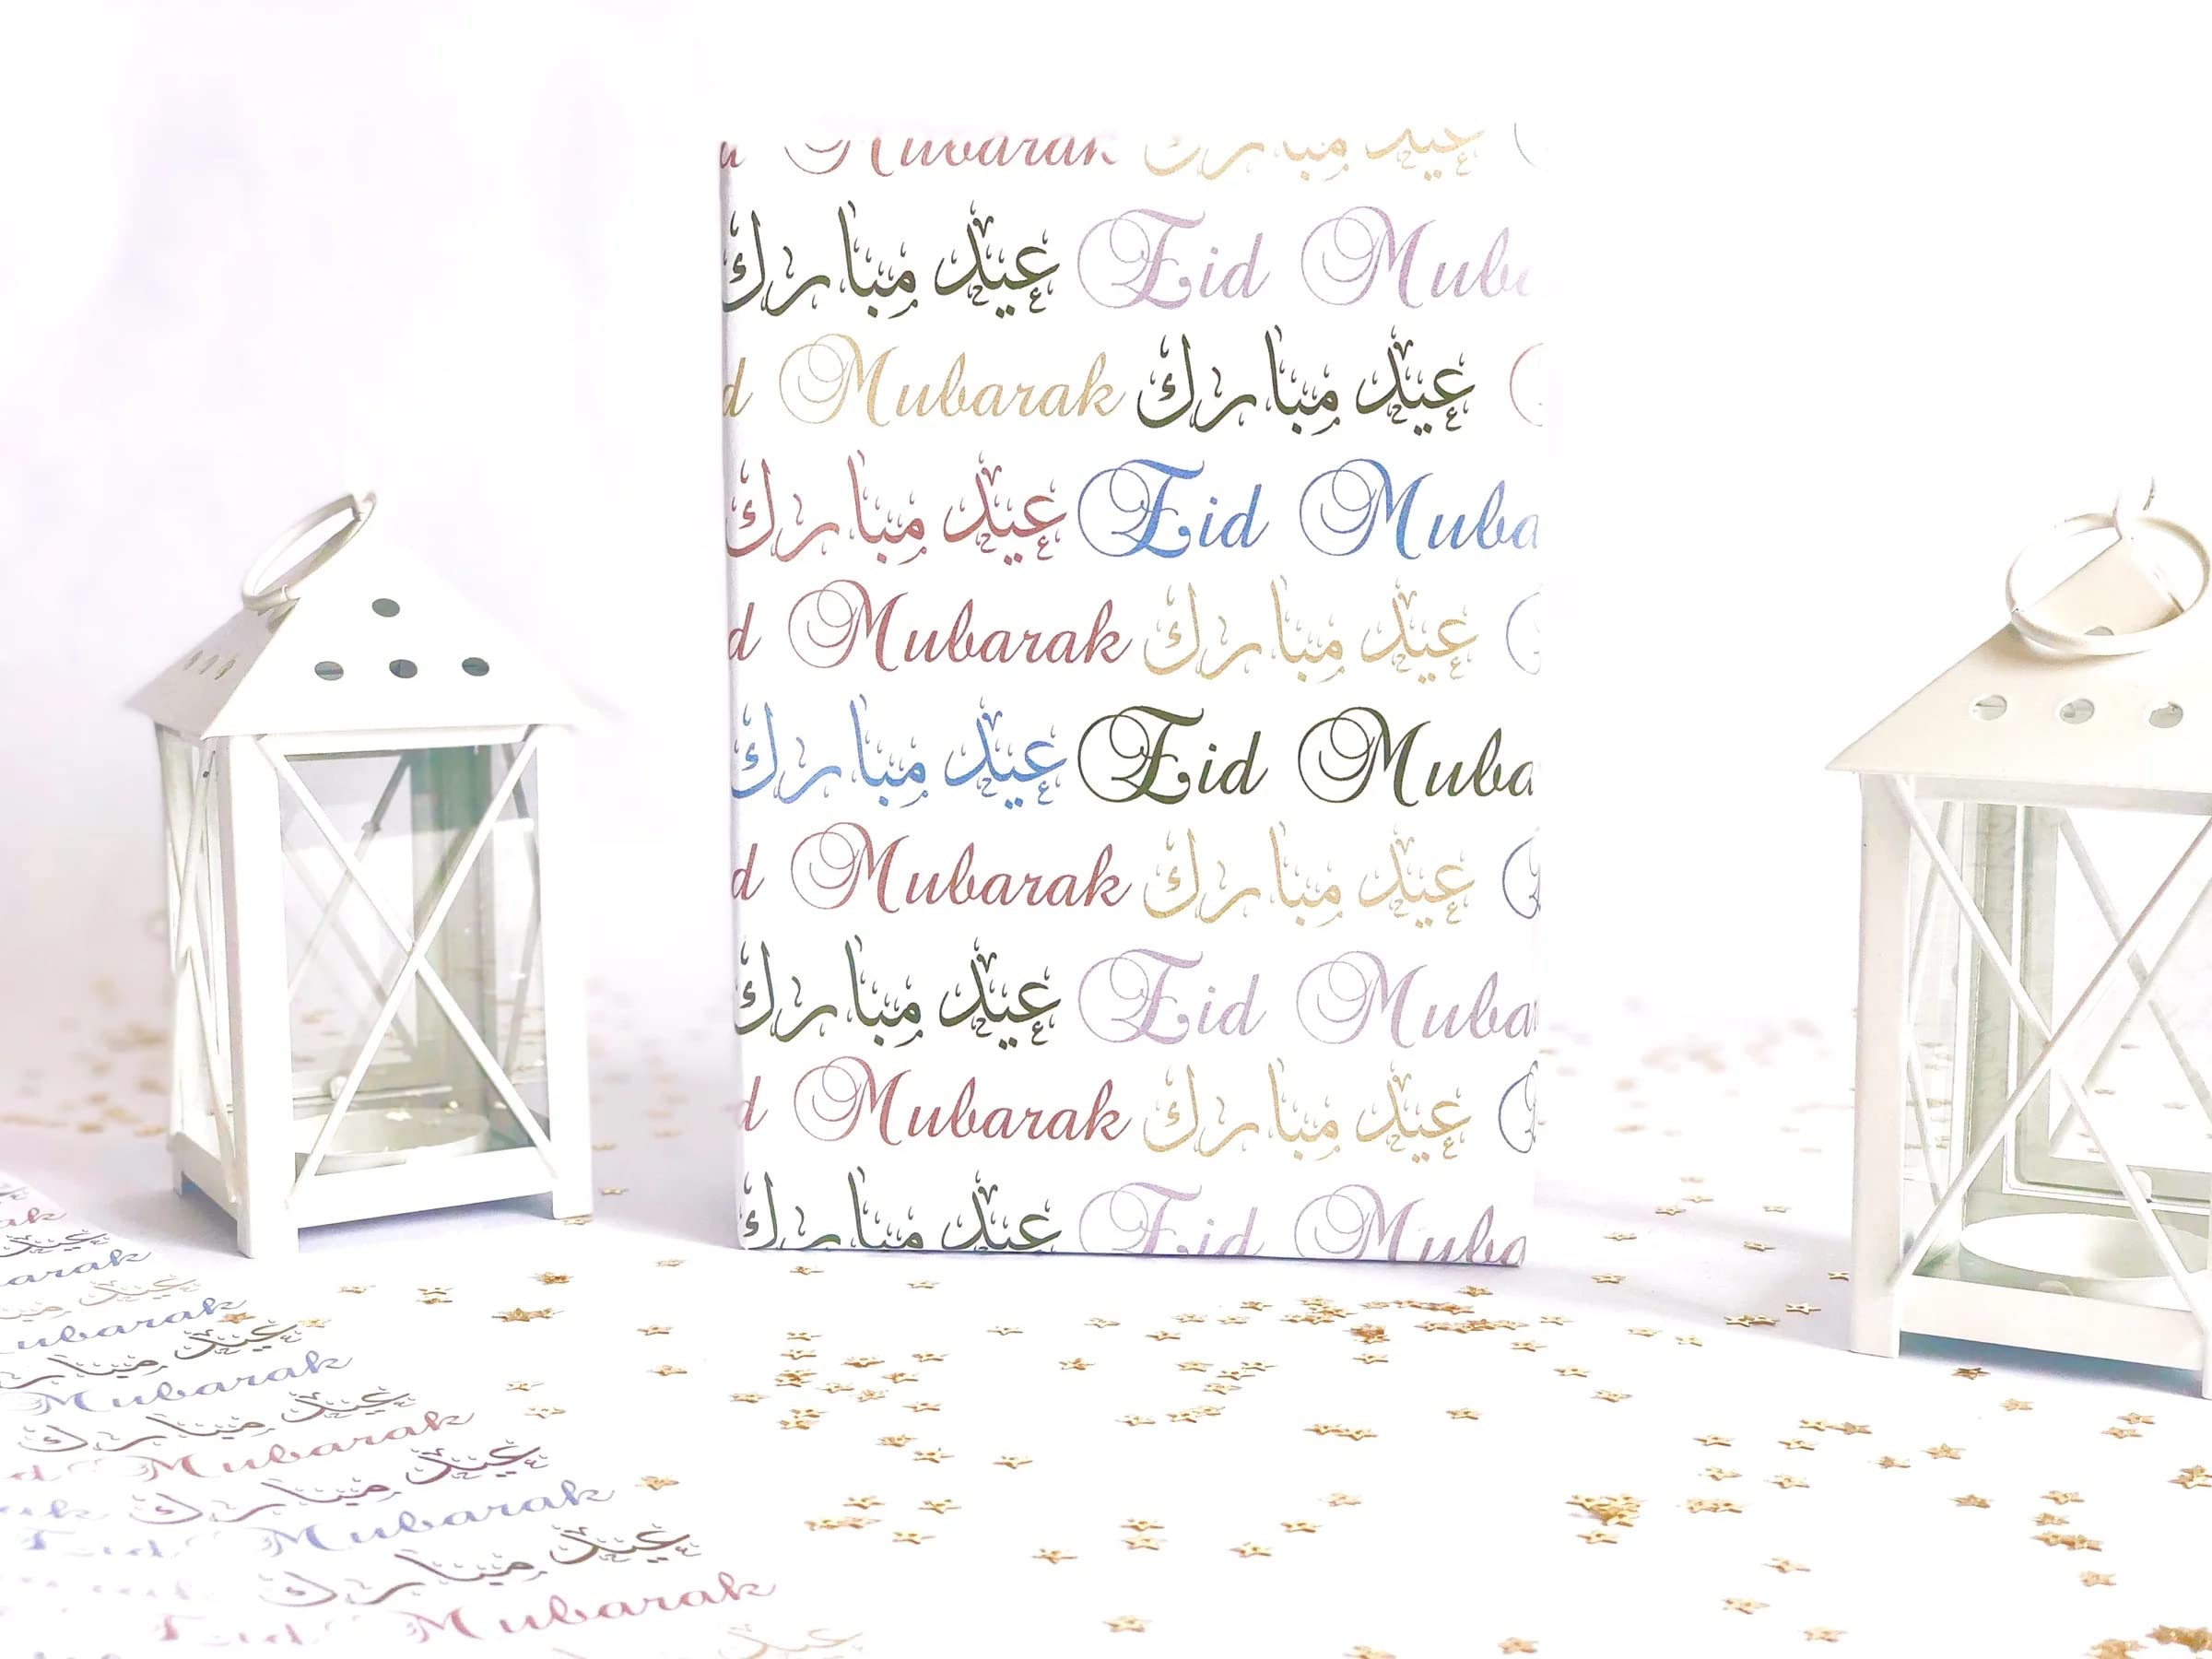 Mubarak عيد مبارك
عيد مبارك Eid Muba
d Mubarak عيد مبارك
عيد مبارك Eid Muba
d Mubarak عيد مبارك
عيد مبارك Eid Muba
d Mubarak عيد مبارك
عيد مبارك Eid Muba
d Mubarak عيد مبارك
عيد مبارك Eid Muba
ak
عيد
arak
عيد
ubarak
عيد مبارك
Mubarak
عيد مبارك
d Mubarak
عيد مبارك
Eid Mubarak
عيد مبارك
Eid Mubarak
عيد